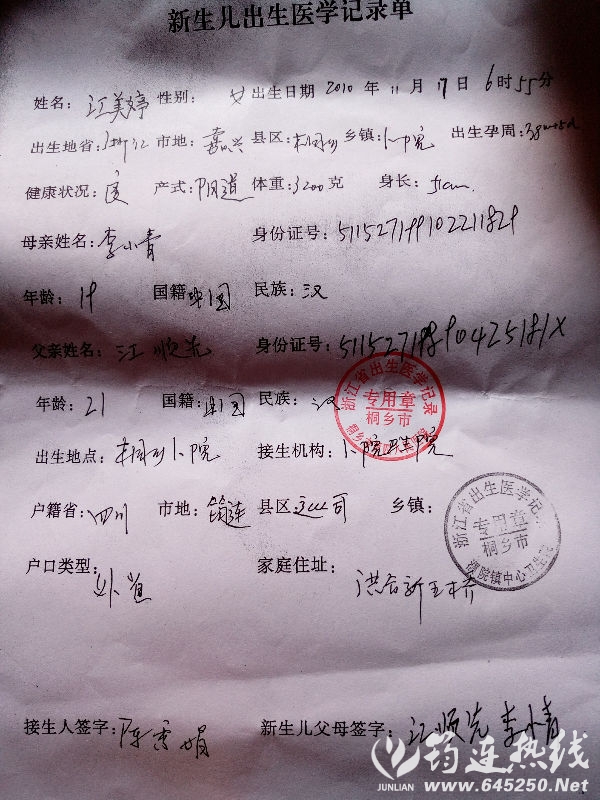 新生儿出生医学记录单
姓名：江美婷 性别： 女 出生日期 2010 年 11 月 17 日 6 时 55 分
出生地省：浙江 市地：嘉兴 县区：桐乡 乡镇： 出生孕周：
健康状况：良 产式：阴道 体重：3200克 身长：51cm
母亲姓名：李小青 身份证号：511527199102211829
年龄：19 国籍：中国 民族：汉
父亲姓名：江顺先 身份证号：
年龄：21 国籍：中国 民族：汉
浙江省出生医学记录
专用章
桐乡市
出生地点： 接生机构：
户籍省：四川 市地：筠连 县区： 乡镇：
浙江省出生医学记录
专用章
桐乡市
濮院镇中心卫生院
户口类型： 家庭住址：
接生人签字： 新生儿父母签字：江顺先 李小青
筠连热线
JUNLIAN www.645250.Net